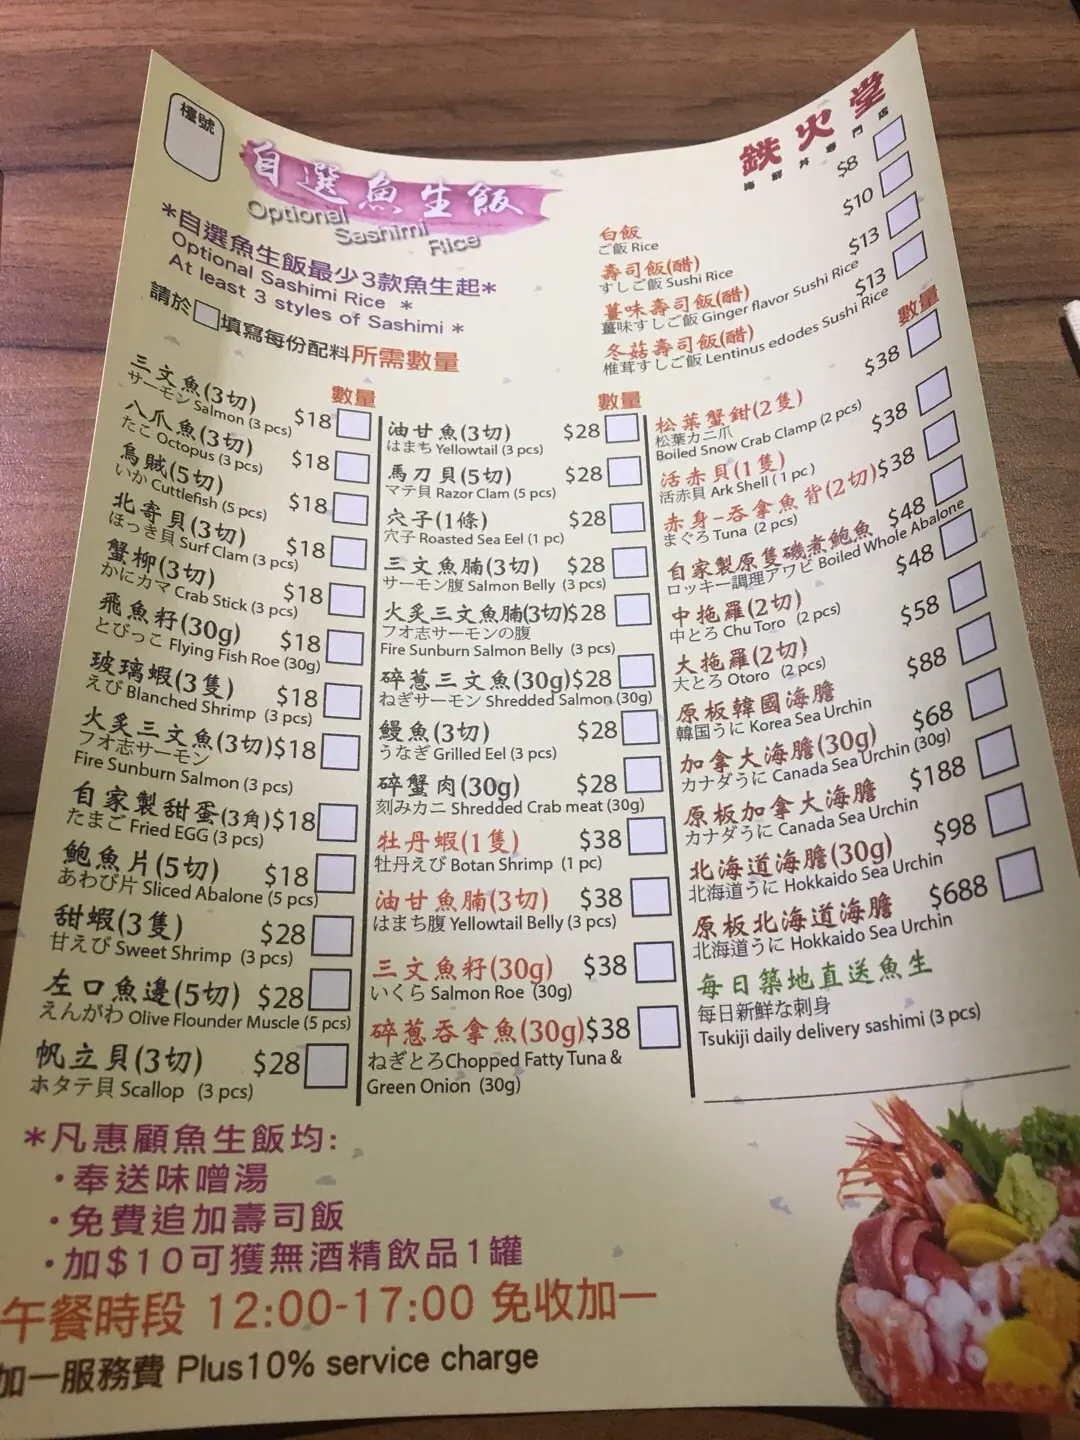 檯號
自選魚生飯
Optional
Sashimi
Rice
鉄火堂
海鮮丼專門店
*自選魚生飯最少3款魚生起*
Optional Sashimi Rice *
At least 3 styles of Sashimi *
請於 填寫每份配料所需數量
白飯 $8
ご飯 Rice
壽司飯(醋) $10
すしご飯 Sushi Rice
薑味壽司飯(醋) $13
薑味すしご飯 Ginger flavor Sushi Rice
冬菇壽司飯(醋) $13
椎茸すしご飯 Lentinus edodes Sushi Rice
數量
三文魚(3切) $18
サーモン Salmon (3 pcs)
八爪魚(3切) $18
たこ Octopus (3 pcs)
烏賊(5切) $18
いか Cuttlefish (5 pcs)
北寄貝(3切) $18
ほっき貝 Surf Clam (3 pcs)
蟹柳(3切) $18
かにカマ Crab Stick (3 pcs)
飛魚籽(30g) $18
とびっこ Flying Fish Roe (30g)
玻璃蝦(3隻) $18
えび Blanched Shrimp (3 pcs)
火炙三文魚(3切) $18
フオ志サーモン
Fire Sunburn Salmon (3 pcs)
自家製甜蛋(3角) $18
たまご Fried EGG (3 pcs)
鮑魚片(5切) $18
あわび片 Sliced Abalone (5 pcs)
甜蝦(3隻) $28
甘えび Sweet Shrimp (3 pcs)
左口魚邊(5切) $28
えんがわ Olive Flounder Muscle (5 pcs)
帆立貝(3切) $28
ホタテ貝 Scallop (3 pcs)
數量
油甘魚(3切) $28
はまち Yellowtail (3 pcs)
馬刀貝(5切) $28
マテ貝 Razor Clam (5 pcs)
穴子(1條) $28
穴子 Roasted Sea Eel (1 pc)
三文魚腩(3切) $28
サーモン腹 Salmon Belly (3 pcs)
火炙三文魚腩(3切) $28
フオ志サーモンの腹
Fire Sunburn Salmon Belly (3 pcs)
碎蔥三文魚(30g) $28
ねぎサーモン Shredded Salmon (30g)
鰻魚(3切) $28
うなぎ Grilled Eel (3 pcs)
碎蟹肉(30g) $28
刻みカニ Shredded Crab meat (30g)
牡丹蝦(1隻) $38
牡丹えび Botan Shrimp (1 pc)
油甘魚腩(3切) $38
はまち腹 Yellowtail Belly (3 pcs)
三文魚籽(30g) $38
いくら Salmon Roe (30g)
碎蔥吞拿魚(30g) $38
ねぎとろ Chopped Fatty Tuna &
Green Onion (30g)
數量
松葉蟹鉗(2隻) $38
松葉カニ爪
Boiled Snow Crab Clamp (2 pcs)
活赤貝(1隻) $38
活赤貝 Ark Shell ( 1 pc )
赤身-吞拿魚背(2切) $38
まぐろ Tuna (2 pcs)
自家製原隻磯煮鮑魚 $48
ロッキー調理アワビ Boiled Whole Abalone
中拖羅(2切) $48
中とろ Chu Toro (2 pcs)
大拖羅(2切) $58
大とろ Otoro (2 pcs)
原板韓國海膽 $88
韓国うに Korea Sea Urchin
加拿大海膽(30g) $68
カナダうに Canada Sea Urchin (30g)
原板加拿大海膽 $188
カナダうに Canada Sea Urchin
北海道海膽(30g) $98
北海道うに Hokkaido Sea Urchin
原板北海道海膽 $688
北海道うに Hokkaido Sea Urchin
每日築地直送魚生
毎日新鮮な刺身
Tsukiji daily delivery sashimi (3 pcs)
*凡惠顧魚生飯均:
·奉送味噌湯
·免費追加壽司飯
·加$10可獲無酒精飲品1罐
午餐時段 12:00-17:00 免收加一
加一服務費 Plus10% service charge